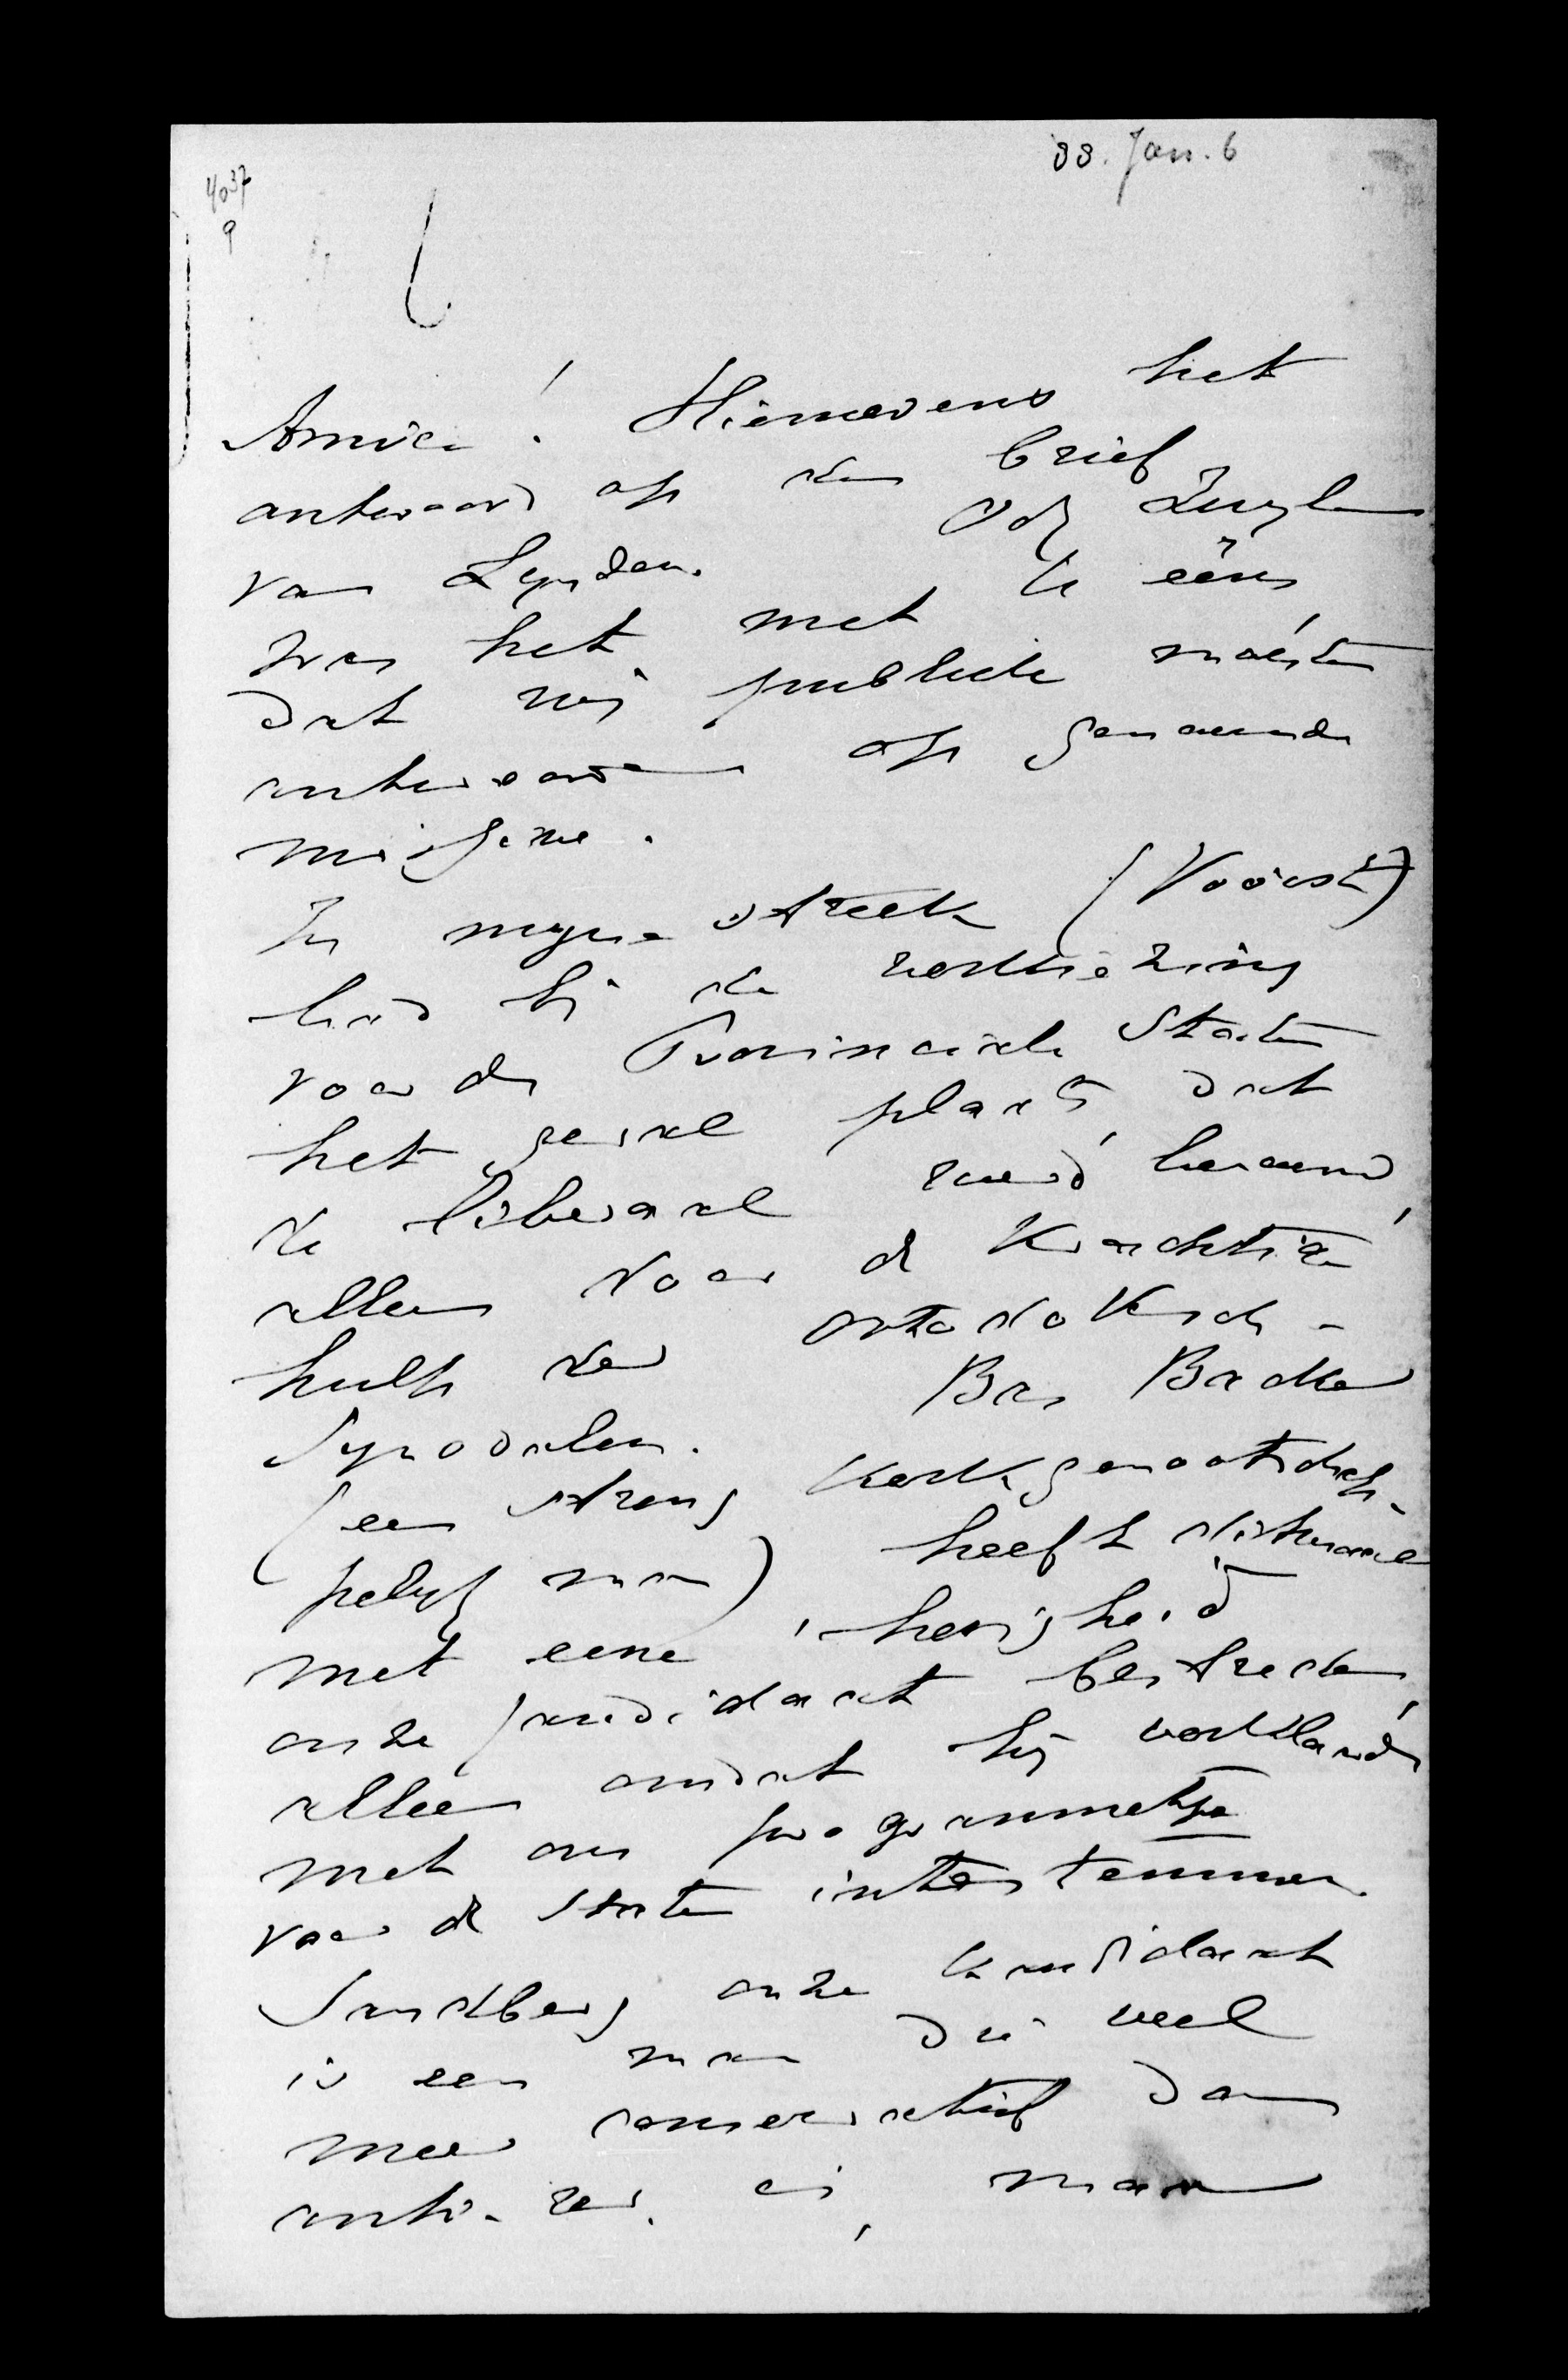 88. Jan. 6
4037
9
Amice! Hiernevens het
antwoord op den brief
van Lynden. Ook Zuylen
was het met U eens
dat wij publiek moesten
antwoorden op genoemde
missive.
In mijne streek (Voorst)
had bij de verkiezing
voor de Provinciale Staten
het geval plaats, dat
de liberaal werd benoemd,
alleen door de krachtige
hulp der ortodoksch-
Synodalen. Bas Backer
(een streng kerkgenootschap-
pelijk man) heeft ditmaal
met eene hevigheid
onze kandidaat bestreden,
alleen omdat hij verklaarde
met ons programmetje
voor de Staten intestemmen.
Sandberg onze kandidaat
is een man die veel
meer conservatief dan
anti-rev. is, maar